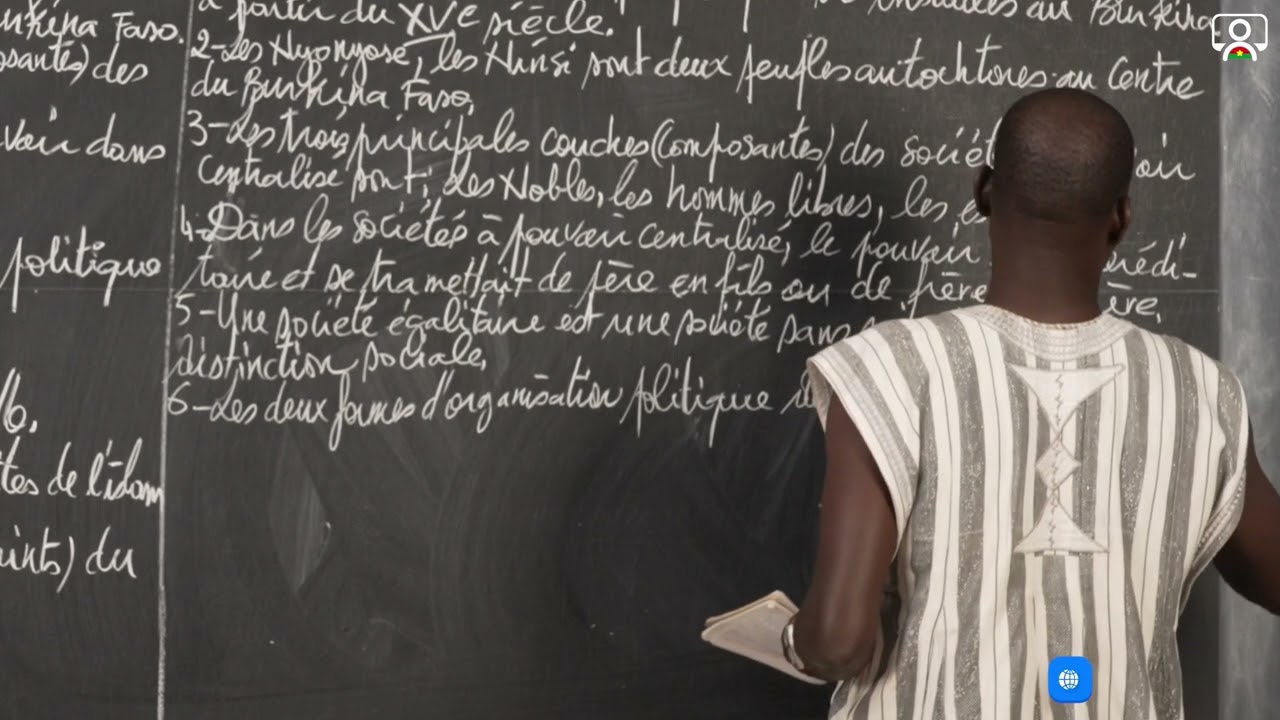 urkina Faso.
osantes) des
voir dans
politique
16.
tes de l'islam
ints) du
à partir du XVe siècle.
installés au Burkina
2-Les Nyonyosé, les Ninsi sont deux peuples autochtones au Centre
du Burkina Faso.
3-Les trois principales couches (composantes) des sociét oir
centralisé sont; Les Nobles, les hommes libres, les es
4-Dans les sociétés à pouvoir centralisé, le pouvoir érédi-
taire et se tramettait de père en fils ou de frère ère.
5-Une société égalitaire est une société sans
distinction sociale.
6-Les deux formes d'organisation politique